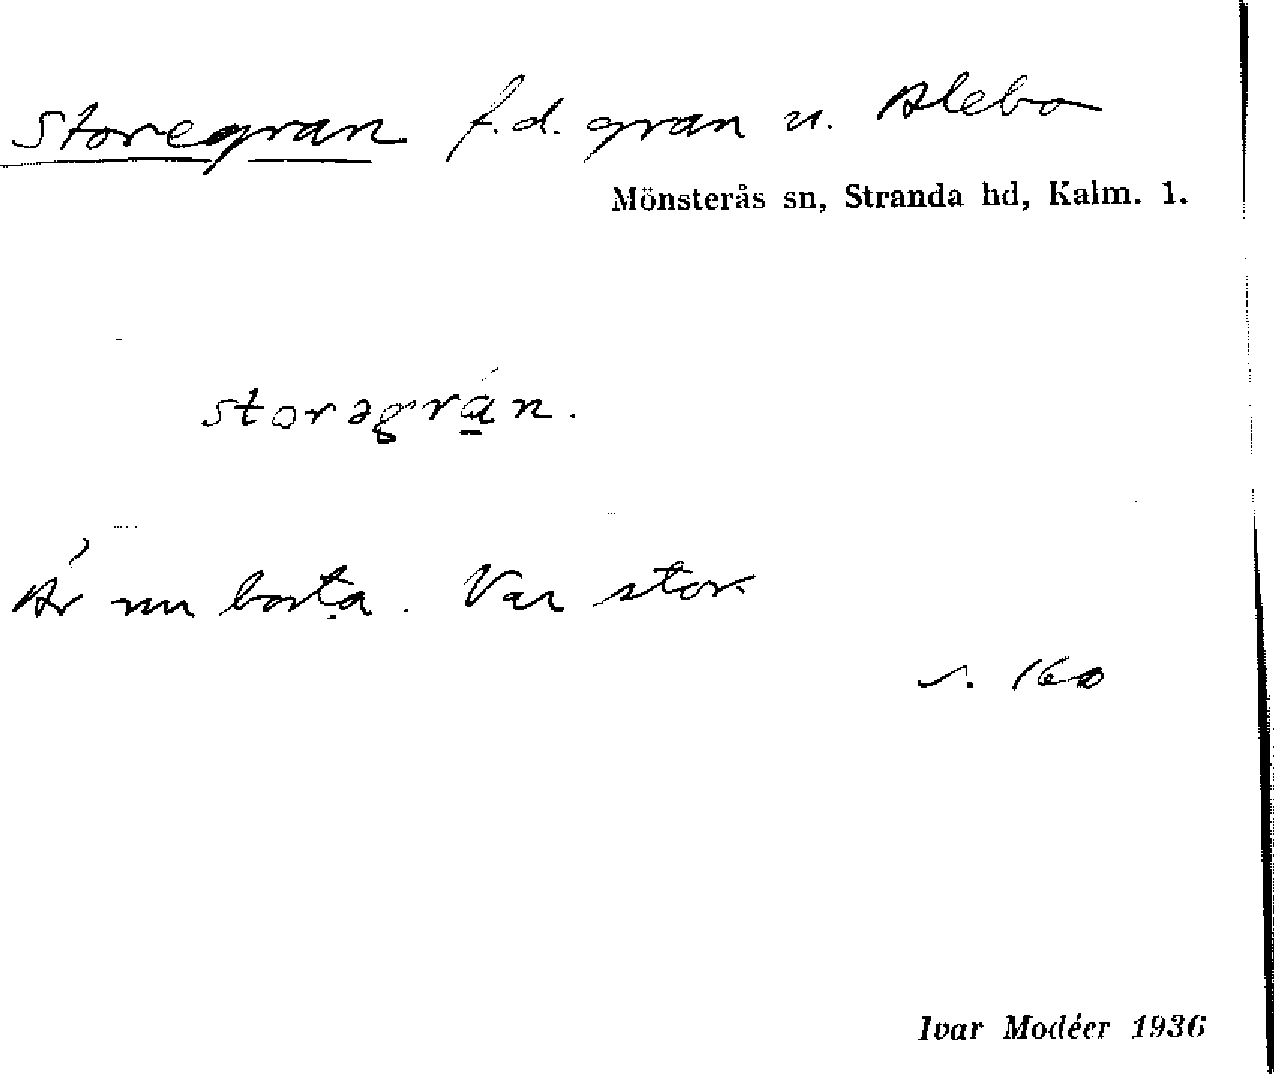 Storegran f.d. gran u. Alebo
Mönsterås sn, Stranda hd, Kalm. l.
storəgrá̱n.
Är nu borta. Var stor
s. 160
Ivar Modéer 1936